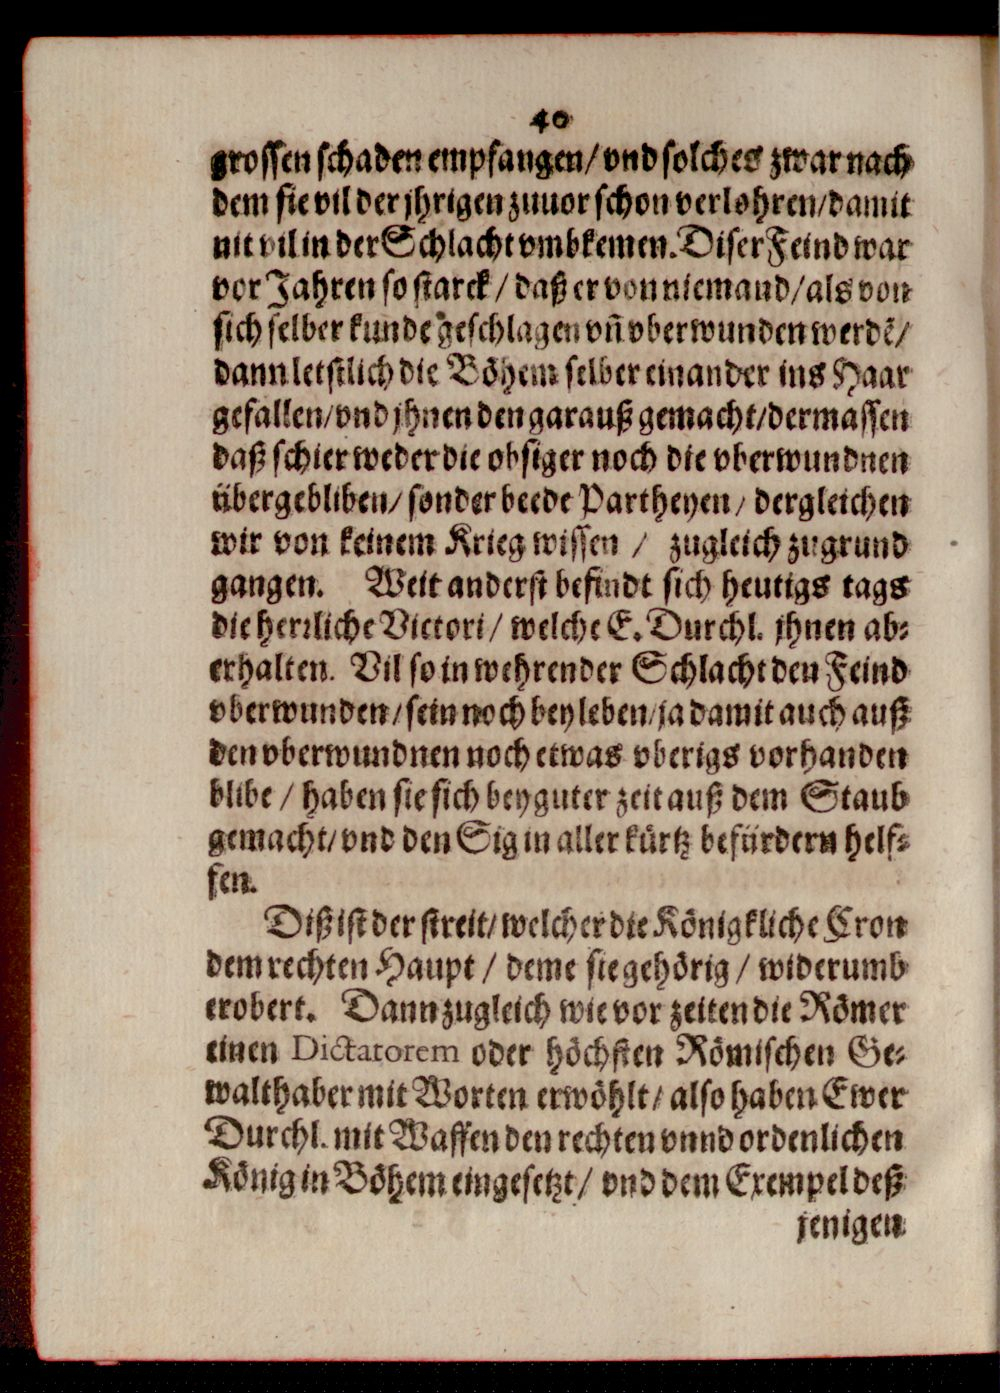 40
grossen schaden empfangen/ vnd solches zwar nach
dem sie vil der jhrigen zuuor schon verlohren/ damit
nit vil in der Schlacht vmbkemen. Diser Feind war
vor Jahren so starck / daß er von niemand/ als von
sich selber kunde geschlagen vñ vberwunden werdẽ/
dann letstlich die Böhem selber einander ins Haar
gefallen/ vnd jhnen den garauß gemacht/ dermassen
daß schier weder die obsiger noch die vberwundnen
übergebliben/ sonder beede Partheyen / dergleichen
wir von keinem Krieg wissen / zugleich zugrund
gangen. Weit anderst befindt sich heutigs tags
die herrliche Victori / welche E. Durchl. jhnen ab-
erhalten. Vil so in wehrender Schlacht den Feind
vberwunden / sein noch bey leben/ ja damit auch auß
den vberwundnen noch etwas vberigs vorhanden
blibe / haben sie sich bey guter zeit auß dem Staub
gemacht/ vnd den Sig in aller kürtz befürdern helf-
fen.
Diß ist der streit/ welcher die Königkliche Cron
dem rechten Haupt / deme sie gehörig / widerumb
erobert. Dann zugleich wie vor zeiten die Römer
einen Dictatorem oder höchsten Römischen Ge-
walthaber mit Worten erwöhlt / also haben Ewer
Durchl. mit Waffen den rechten vnnd ordenlichen
König in Böhem eingesetzt / vnd dem Exempel deß
jenigen